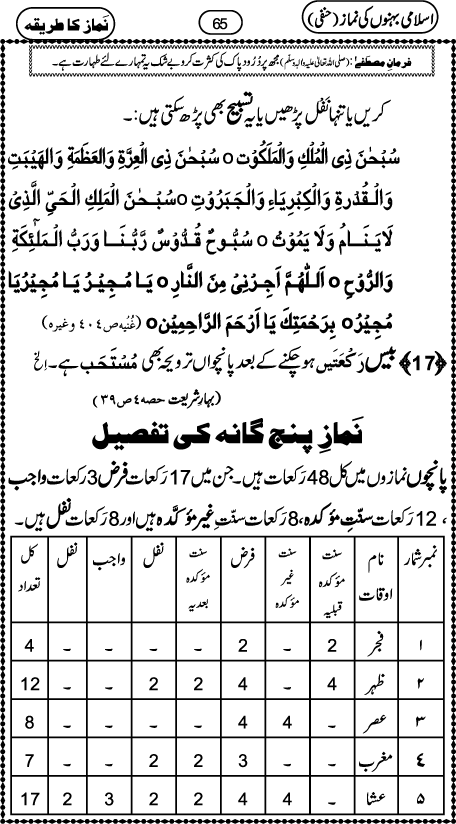 اسلامی بہنوں کی نماز (حنفی) 65 نَماز کا طریقہ
فرمانِ مصطفےٰ: (صلی اللہ تعالیٰ علیہ والہٖ وسلم) مجھ پر دُرُود پاک کی کثرت کرو بے شک یہ تمہارے لئے طہارت ہے۔
کریں یا تنہا نَفْل پڑھیں یا یہ تسبیح بھی پڑھ سکتی ہیں:۔
سُبْحٰنَ ذِی الْمُلْكِ وَالْمَلَكُوْتِ o سُبْحٰنَ ذِی الْعِزَّةِ وَالْعَظَمَةِ وَالْهَيْبَتِ
وَالْقُدْرَةِ وَالْكِبْرِيَاءِ وَالْجَبَرُوْتِ o سُبْحٰنَ الْمَلِكِ الْحَیِّ الَّذِیْ
لَايَنَامُ وَلَا يَمُوْتُ o سُبُّوْحٌ قُدُّوْسٌ رَبُّنَا وَرَبُّ الْمَلٰٓئِكَةِ
وَالرُّوْحِ o اَللّٰهُمَّ اَجِرْنِیْ مِنَ النَّارِ o يَا مُجِيْرُ يَا مُجِيْرُ يَا
مُجِيْرُ o بِرَحْمَتِكَ يَا اَرْحَمَ الرَّاحِمِيْن o (غُنْیہ ص ٤٠٤ وغیرہ)
﴿17﴾ بیس رَکْعَتَیں ہو چکنے کے بعد پانچواں ترویحہ بھی مُسْتَحَب ہے۔ الخ
(بہارِ شریعت حصہ ٤ ص ٣٩)
نَمازِ پنج گانہ کی تفصیل
پانچوں نمازوں میں کل 48 رَکعات ہیں۔ جن میں 17 رَکعات فرض 3 رَکعات واجب
، 12 رَکعات سنّتِ مؤکدہ، 8 رَکعات سنّتِ غیر مؤکَّدہ ہیں اور 8 رَکعات نفل ہیں۔
نمبر شمار | نام اوقات | سنت مؤکدہ قبلیہ | سنت غیر مؤکدہ | فرض | سنت مؤکدہ بعدیہ | نفل | واجب | نفل | کل تعداد
١ | فجر | 2 | - | 2 | - | - | - | - | 4
٢ | ظہر | 4 | - | 4 | 2 | 2 | - | - | 12
٣ | عصر | - | 4 | 4 | - | - | - | - | 8
٤ | مغرب | - | - | 3 | 2 | 2 | - | - | 7
۵ | عشا | - | 4 | 4 | 2 | 2 | 3 | 2 | 17